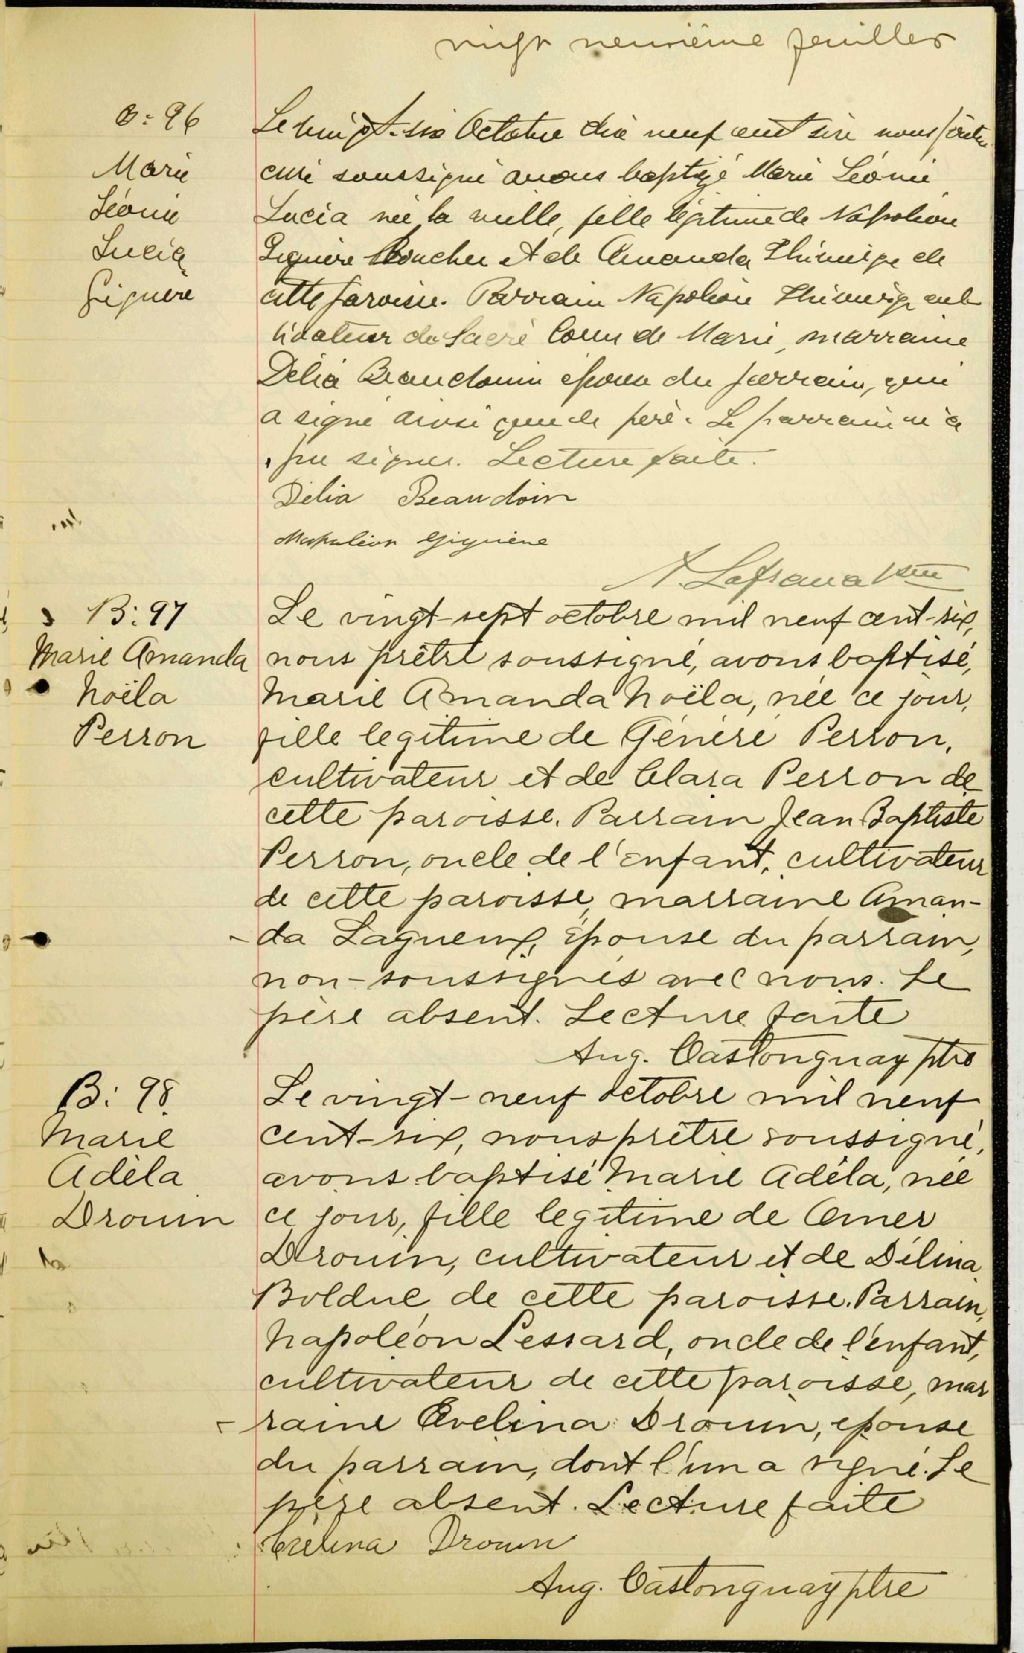 vingt neuvième feuillet
B: 96
Marie
Léonie
Lucia
Giguere
Le vingt-six Octobre dix neuf cent six nous prêtre
curé soussigné avons baptisé Marie Léonie
Lucia née la veille, fille légitime de Napoléon
Giguère Boucher et de Amanda Thivierge de
cette paroisse. Parrain Napoléon Thivierge cul-
tivateur du Sacré Coeur de Marie, marraine
Délia Beaudouin épouse du parrain, qui
a signé ainsi que le père. Le parrain n'a
pu signer. Lecture faite.
Délia Beaudoin
Napoléon Giguère
ptre
B: 97
Marie Amanda
Noëla
Perron
Le vingt-sept octobre mil neuf cent-six,
nous prêtre soussigné, avons baptisé,
Marie Amanda Noëla, née ce jour,
fille legitime de Généré Perron,
cultivateur et de Clara Perron de
cette paroisse. Parrain Jean Baptiste
Perron, oncle de l'enfant, cultivateur
de cette paroisse, marraine Aman-
da Lagueux, épouse du parrain,
non-soussignés avec nous. Le
père absent. Lecture faite
Aug. Castonguay ptre
B: 98
Marie
Adèla
Drouin
Le vingt-neuf octobre mil neuf
cent-six, nous prêtre soussigné,
avons baptisé Marie Adéla, née
ce jour, fille legitime de Omer
Drouin, cultivateur et de Délina
Bolduc de cette paroisse. Parrain,
Napoléon Lessard, oncle de l'enfant,
cultivateur de cette paroisse, mar
raine Evelina Drouin, epouse
du parrain, dont l'un a signé. Le
père absent. Lecture faite
Evelina Drouin
Aug. Castonguay ptre